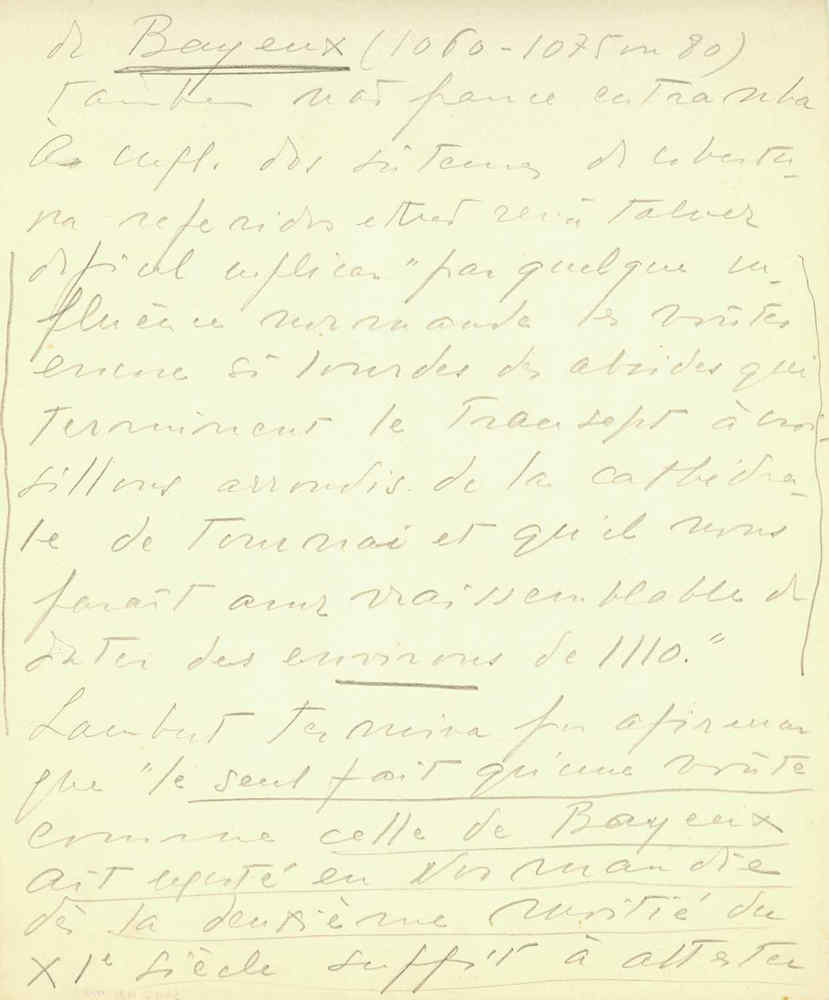 de Bayeux (1060-1075 ou 80)
tambem nos parece entranha
a infl. dos sistemas de cobertu-
ra referidos e thes será talvez
dificil explicar "par quelque in-
fluence normande les voûtes
encore si lourdes des absides qui
terminent le transept à croi-
sillons arrondis de la cathédra-
le de Tournai et qu'il nous
paraît assez vraissemblable de
dater des environs de 1110."
Lambert termina por afirmar
que "le seul fait qu'une voûte
comme celle de Bayeux
ait existé en Normandie
dès la deuxième moitié du
XIe siècle suffit à attester